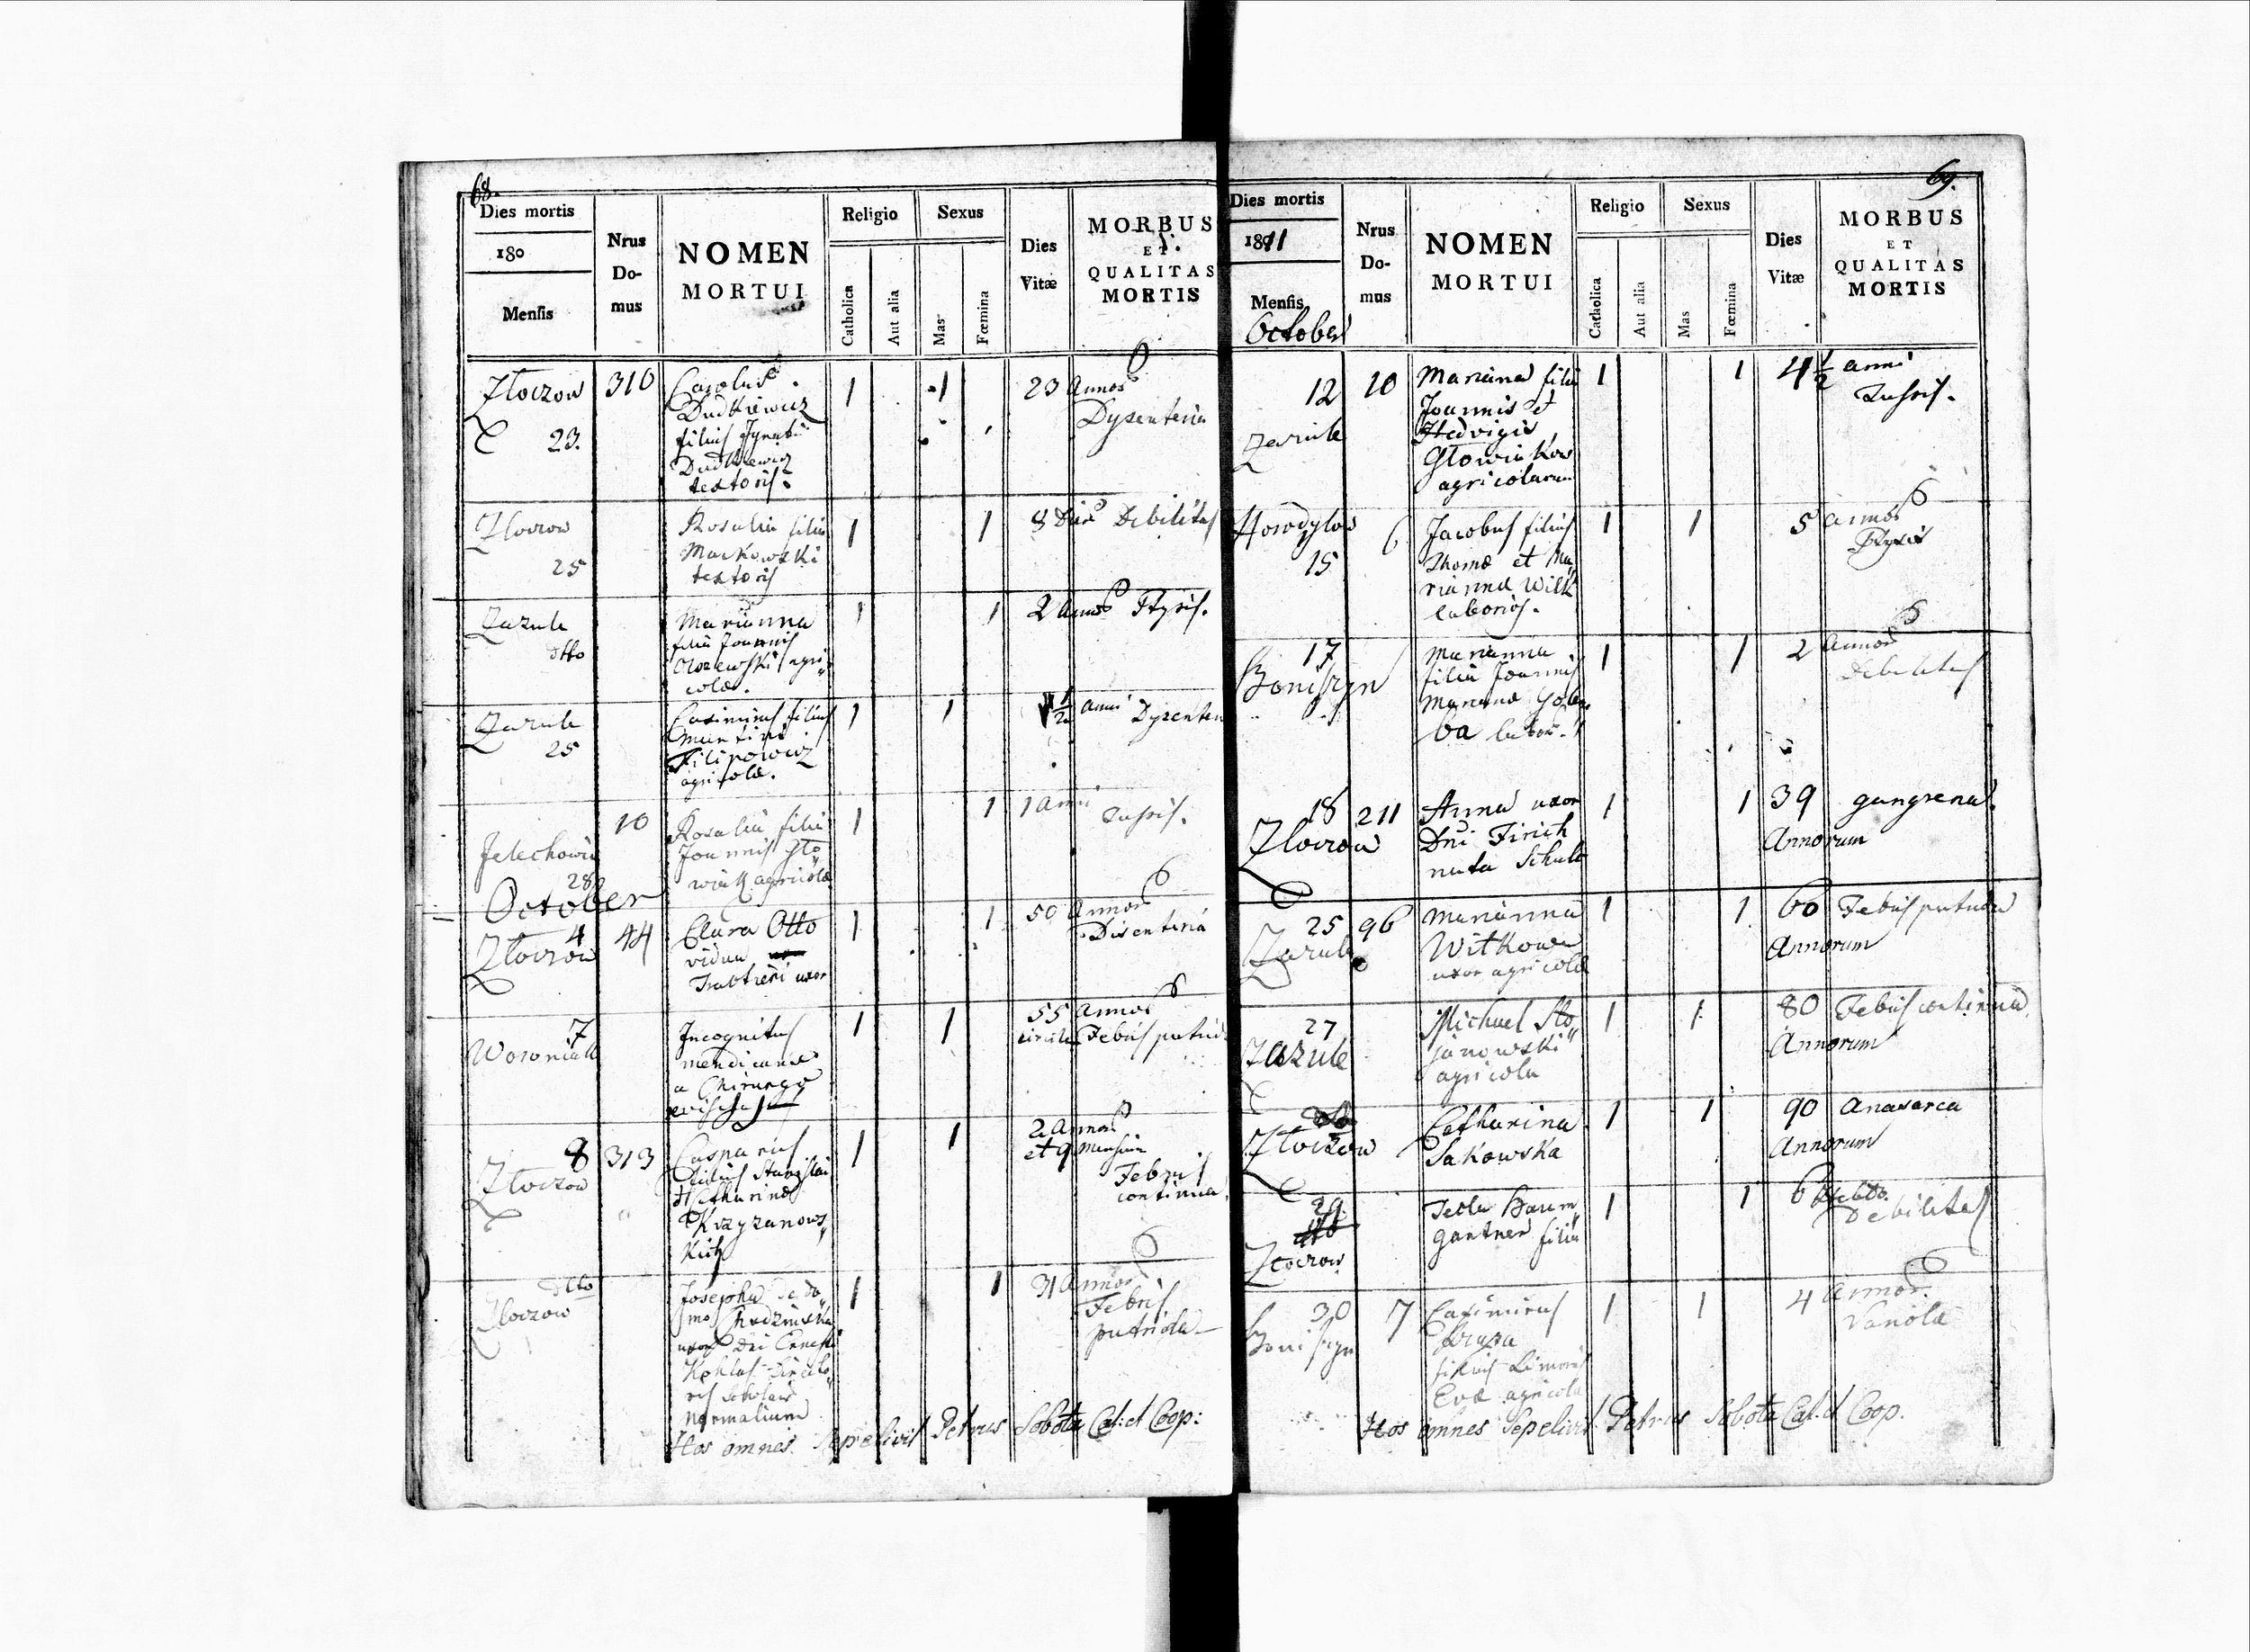 68.
Dies mortis
180
Mensis
Nrus
Do-
mus
NOMEN
MORTUI
Religio
Catholica
Aut alia
Sexus
Mas
Fœmina
Dies
Vitæ
MORBUS
ET
QUALITAS
MORTIS
Złoczow 310 Carolus 1 1 23 Annos
23. Dudkiewicz Dysenteria
filius Ignatii
Dudkiewicz
textoris.
Złoczow Rosalia filia 1 1 8 Dies Debilitas
25 Markowski
textoris
Zazule Marianna 1 1 2 annos Ptysis.
dtto filia Joannis
agri
colæ.
Zazule Casimirus filius 1 1 1/2 anni Dysenteri
25 Martini
Filipowicz
agricolæ.
Jelechowice 10 Rosalia filia 1 1 1 anni Tussis.
28 Joannis Gło
wiak agricolæ
October
4 44 Clara Otto 1 1 50 Annos
Złoczow vidua Disenteria
uxor
7 Incognitus 1 1 55 Annos
Woroniak mendicans circiter Febris putrid
a Chirurgo
8 313 Casparius 1 1 2 Annos
Złoczow filius Stanislai et 9 Mensium
Catharinæ Febris
Krzyzanows continua
kich
dtto Josepha de do 1 1 31 Annos
Złoczow mo Febris
uxor Dni Ernesti putrida
Directo
ris Scholarum
Normalium
Hos omnes Sepelivit Petrus Sobota Cat: et Coop:
69.
Dies mortis
1811
Mensis
October
Nrus
Do-
mus
NOMEN
MORTUI
Religio
Catholica
Aut alia
Sexus
Mas
Fœmina
Dies
Vitæ
MORBUS
ET
QUALITAS
MORTIS
12 10 Marianna filia 1 1 4 1/2 anni
Zazule Joannis et Tussis.
Hedvigis
Głowiakow
agricolarum
Horodylow 6 Jacobus filius 1 1 5 annos
15 Thomæ et Ma Ptysis
rianna Wilk
laborios.
17 Marianna 1 1 2 Annos
Boniszyn filia Joannis Debilitas
Mariana Golem
ba labor.
18 211 Anna uxor 1 1 39 gangrena
Złoczow Dni Annorum
nata Schultz
25 96 Marianna 1 1 60 Febris putrida
Zazule Witkowa Annorum
uxor agricolæ
27 Michael Sto 1 1 80 Febris continua
Zazule janowski Annorum
agricola
Złoczow Catharina 1 1 90 Anasarca
Sakowska Annorum
29 Tecla Baum 1 1 6 Hebdo.
Złoczow gartner filia Debilitas
30 7 Casimirus 1 1 4 Annos
Boniszyn Krupa Variola
filius Simonis
Evæ agricola
Hos omnes Sepelivit Petrus Sobota Cat. et Coop.